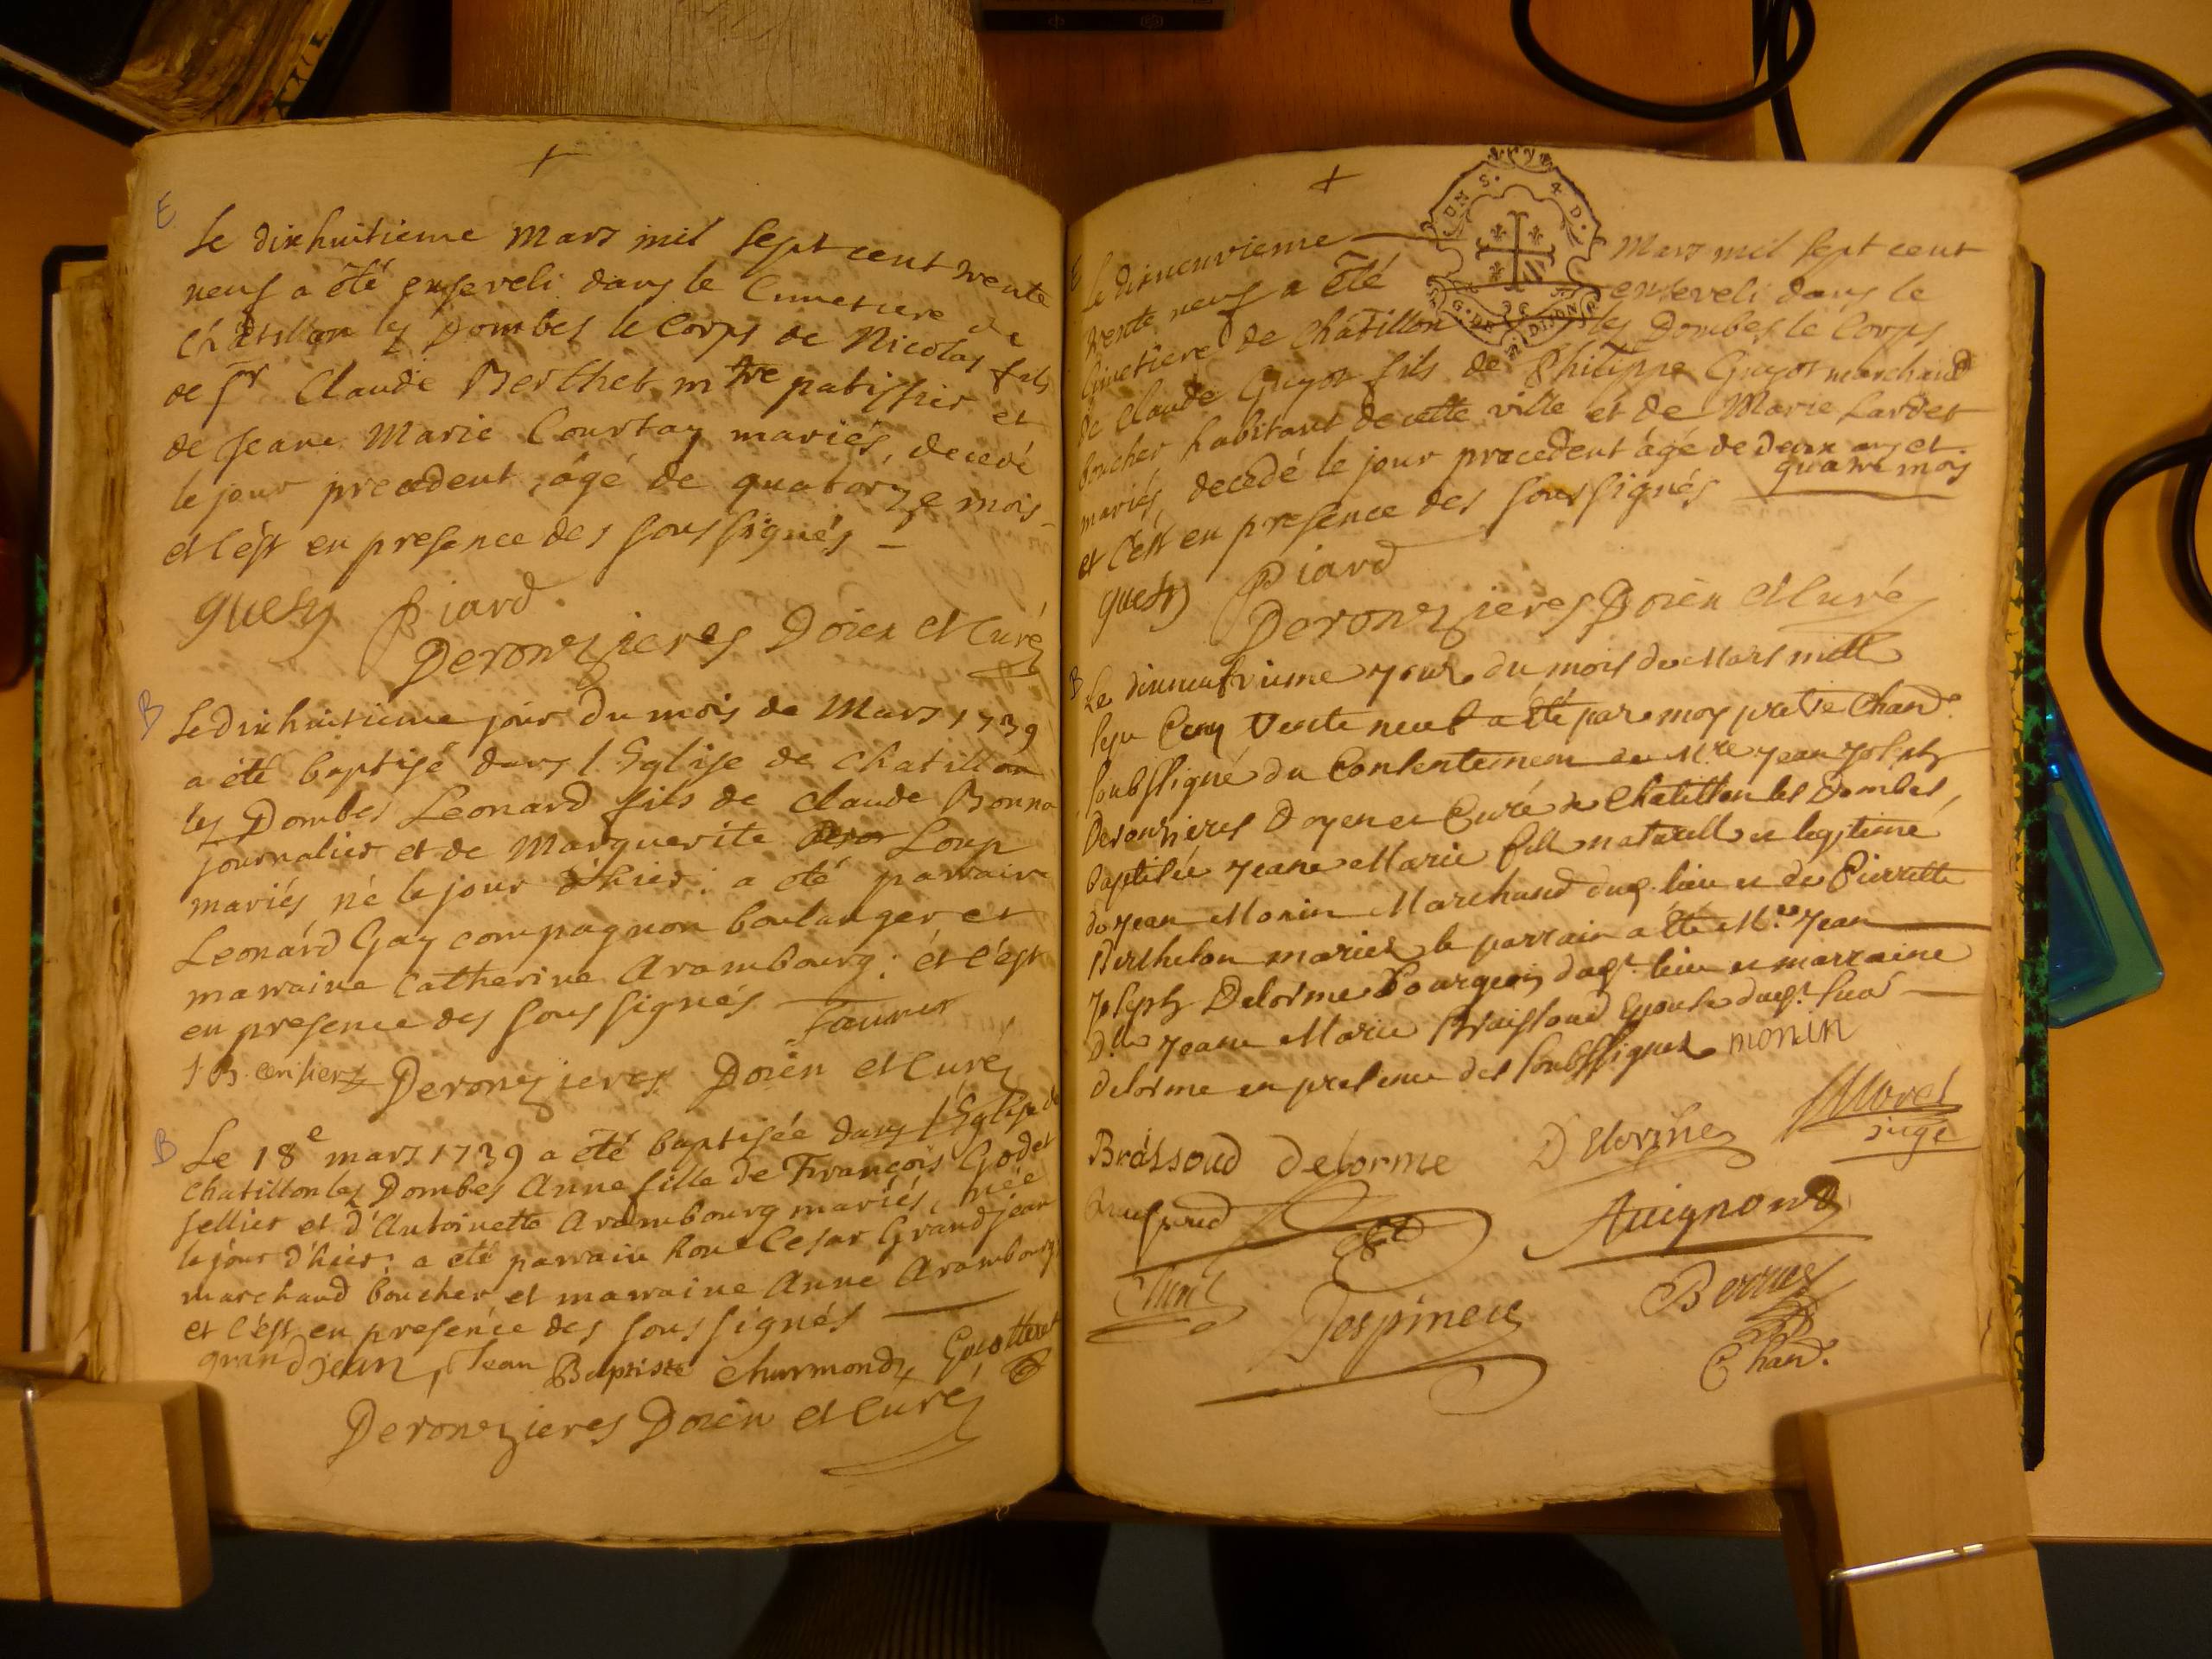 E
Le dixhuitieme Mars mil Sept cent trente
neuf a été enseveli dans le Cimetiere de
Châtillon les Dombes le Corps de Nicolas fils
de Sr Claude Berthet mtre patissier et
de Jeane Marie Courtay mariés, decedé
le jour precedent, âgé de quatorze mois
et c'est en presence des soussignés
guesy Piard
Deronzieres Doien et Curé
B
Le dixhuitieme jour du mois de Mars 1739
a été baptisé dans l'Eglise de Chatillon
les Dombes Leonard fils de Claude Bonna
journalier et de Marguerite Loup
mariés né le jour d'hier: a été parrain
Leonard Gay compagnon boulanger et
marraine Catherine Arambourg: et c'est
en presence des soussignés
Deronzieres Doien et Curé
B
Le 18e mars 1739 a été baptisée dans l'Eglise de
Chatillon les Dombes Anne fille de François Godet
sellier et d'Antoinette Arambourg mariés, née
le jour d'hier: a été parrain hone Cesar Grandjean
marchand boucher et marraine Anne Arambourg
et c'est en presence des soussignés
grandjean, Jean Baptiste Churmond Guotteret
Deronzieres Doien et Curé
E
Le dixneuvieme Mars mil Sept cent
UN S. 4 D.
G. DE DIJON
trente neuf a été enseveli dans le
Cimetiere de Châtillon les Dombes le Corps
de Claude Guyot fils de Philippe Guyot marchand
boucher habitant de cette ville et de Marie Lardet
mariés, decedé le jour precedent âgé de deux ans et
quatre mois
et c'est en presence des soussignés
guesy Piard
Deronzieres Doien et Curé
B
Le dixneufvieme jour du mois de Mars mill
sept Cent trente neuf a été par moy pretre Chane
soubssigné du Consentement de Mre Jean Joseph
Deronzieres Doyen et Curé de Chatillon les Dombes,
baptisée Jeane Marie fille naturelle et legitime
de Jean Monin Marchand dud. lieu et de Pierrette
Berthelon mariez le parrain a été Mre Jean
Joseph Delorme Bourgeois dudt lieu et marraine
Dlle Jeane Marie Braissoud Epouse dudt Sieur
Delorme en presence des soubssignez monin
Brássoud delorme Delorme Morel
juge
Avignond
Despiney Bernus
Chane.